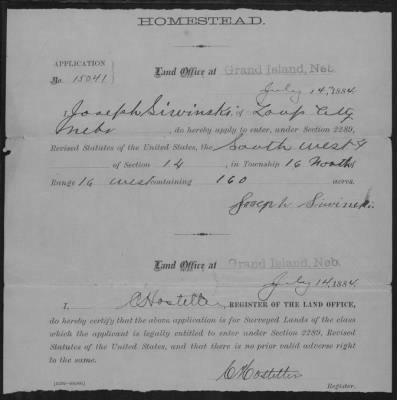 HOMESTEAD.
APPLICATION
No. 15041
Land Office at Grand Island, Neb.
July 14, 1884.
I, Joseph Siwinski, of Loup City
Nebr, do hereby apply to enter, under Section 2289,
Revised Statutes of the United States, the South West 4
of Section 14, in Township 16 North
Range 16 West containing 160 acres.
Joseph Siwinski.
Land Office at Grand Island, Neb.
July 14, 1884.
I, C Hostetter, REGISTER OF THE LAND OFFICE,
do hereby certify that the above application is for Surveyed Lands of the class
which the applicant is legally entitled to enter under Section 2289, Revised
Statutes of the United States, and that there is no prior valid adverse right
to the same.
C Hostetter
Register.